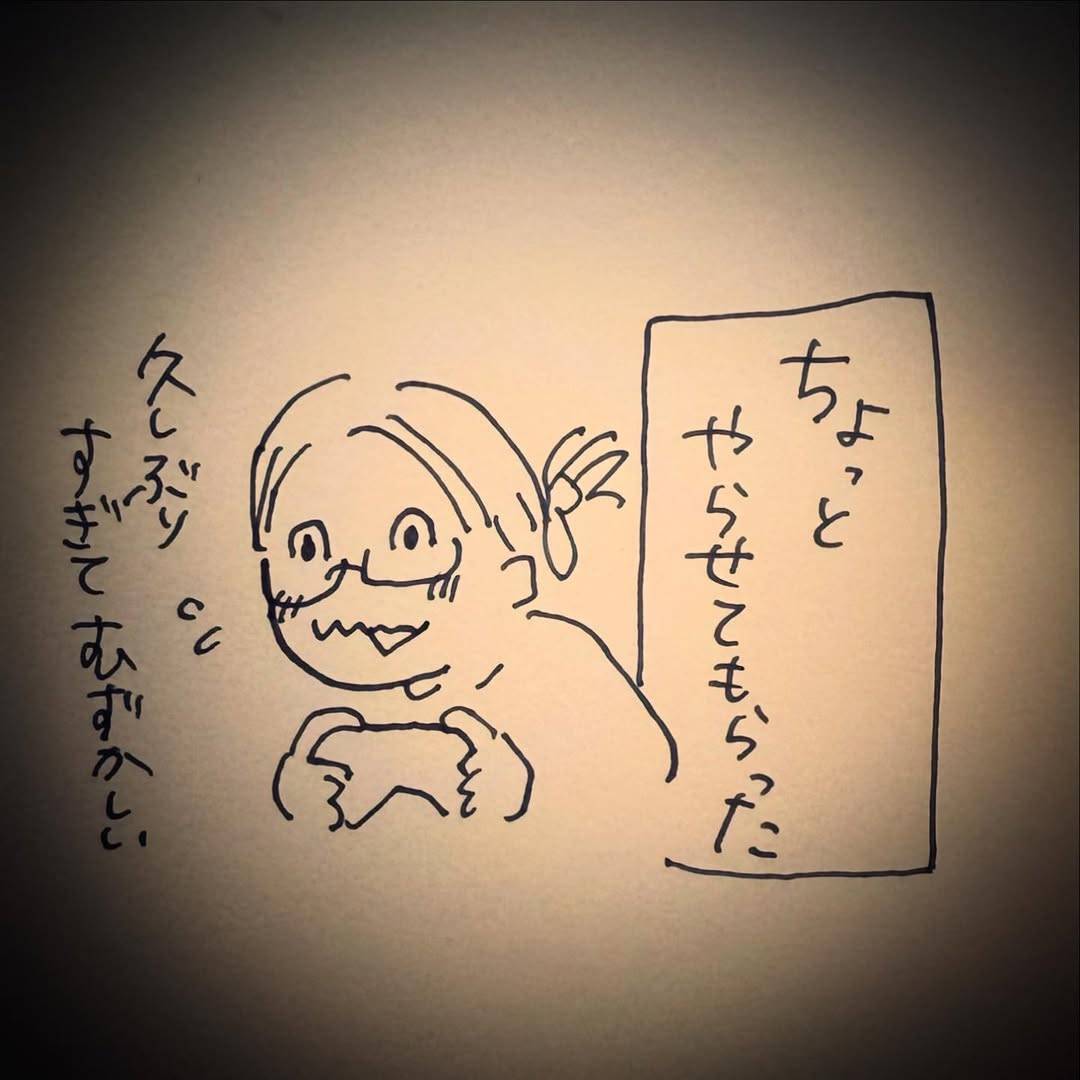 ちょっと
やらせてもらった
久しぶり
すぎてむずかしい